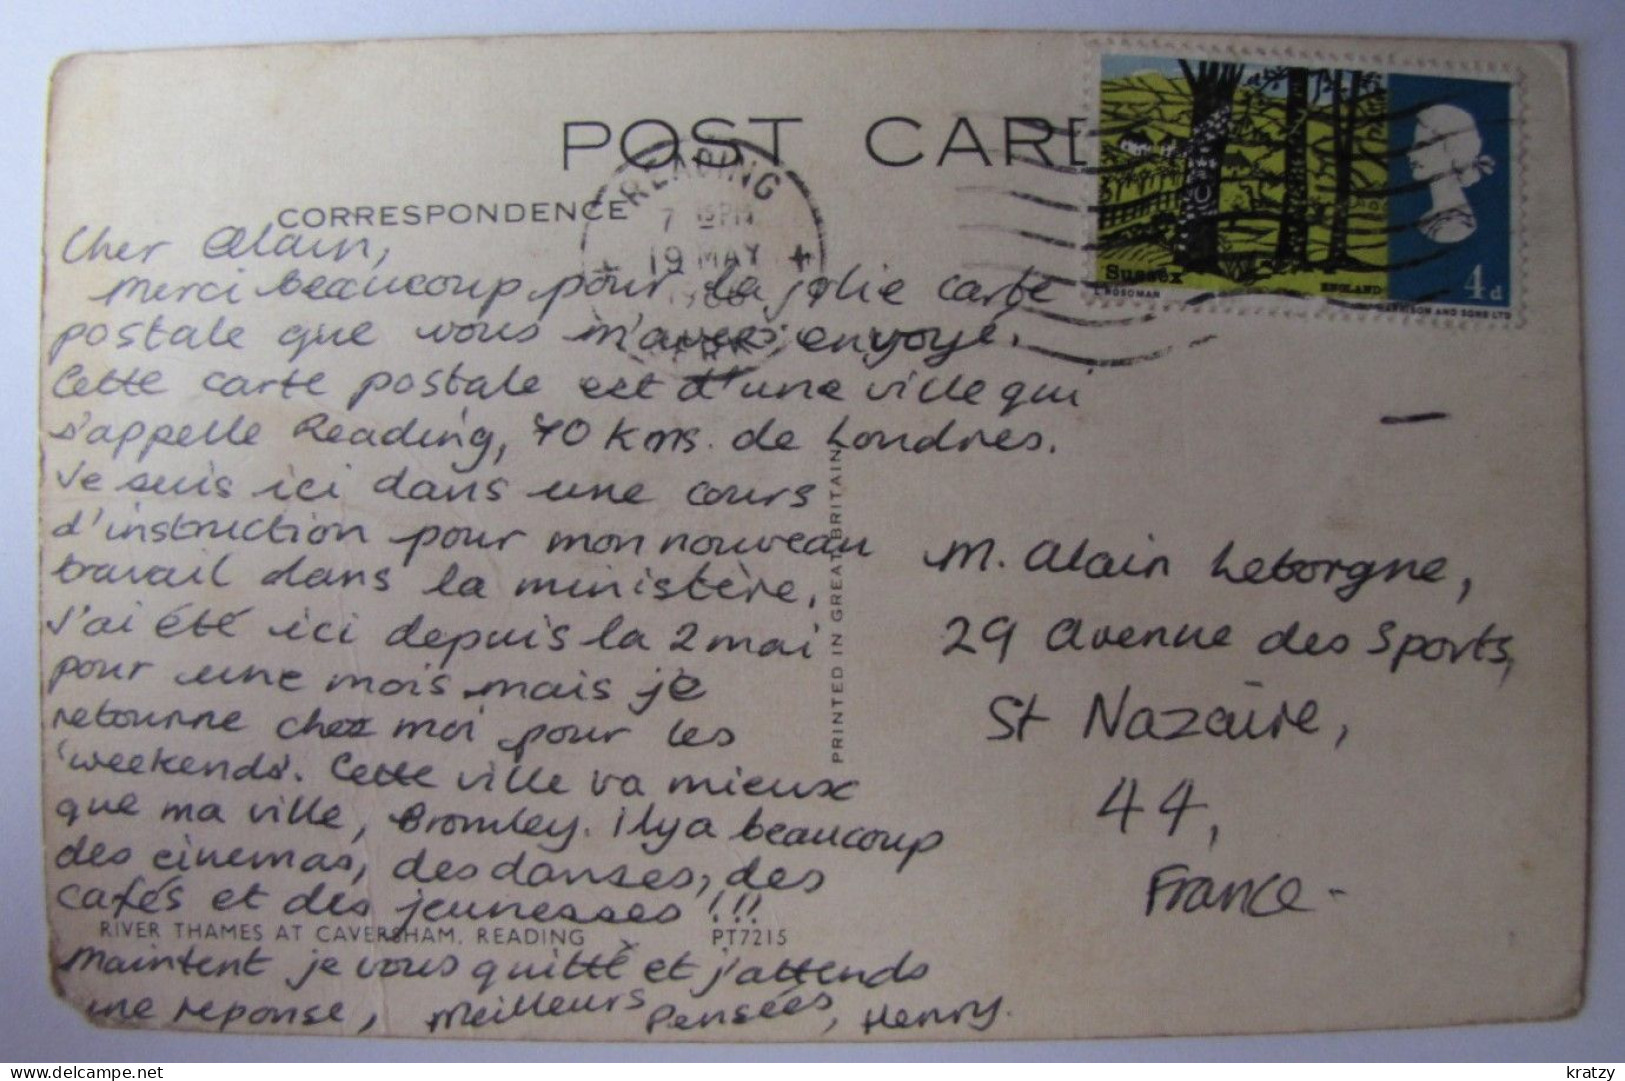 POST CARD
CORRESPONDENCE
READING
7 15PM
19 MAY
1966
Sussex
ENGLAND
L ROSOMAN
HARRISON AND SONS LTD
4d
Cher Alain,
Merci beaucoup pour la jolie carte
postale que vous m'avez envoyé.
Cette carte postale est d'une ville qui
s'appelle Reading, 70 kms. de Londres.
Je suis ici dans une cours
d'instruction pour mon nouveau
travail dans la ministère,
J'ai été ici depuis la 2 mai
pour une mois mais je
retourne chez moi pour les
'weekends'. Cette ville va mieux
que ma ville, Bromley. il y a beaucoup
des cinemas, des danses, des
cafés et des jeunesses!!!
RIVER THAMES AT CAVERSHAM, READING PT7215
Maintent je vous quitté et j'attends
une reponse, Meilleurs Pensées, Henry.
PRINTED IN GREAT BRITAIN
M. Alain Leborgne,
29 Avenue des Sports,
St Nazaire,
44,
France-
kratzy